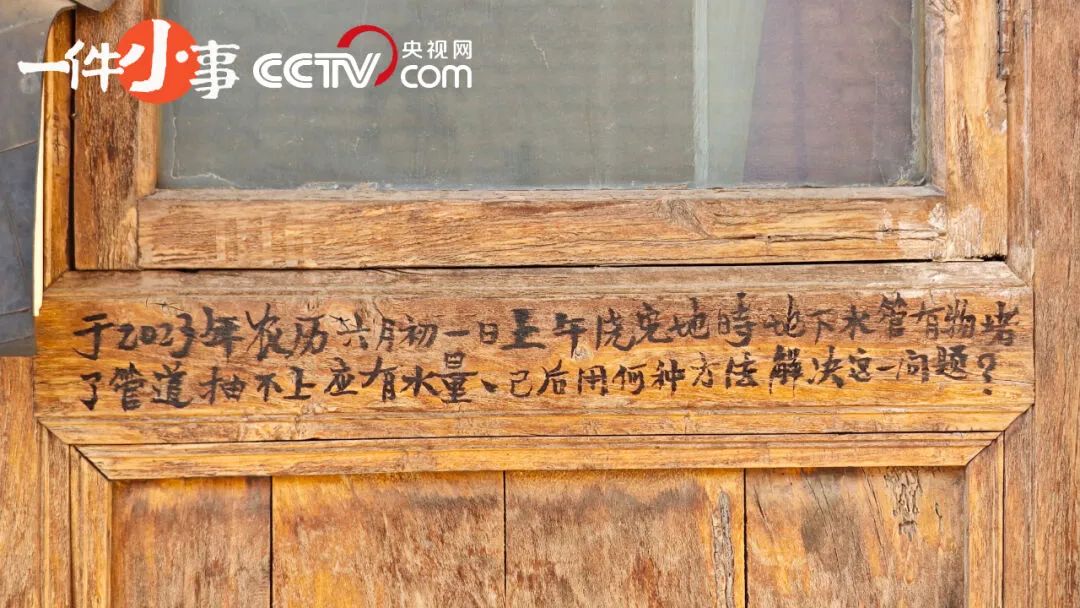 一件小事
CCTV 央视网
com
于2023年农历六月初一日上午浇完地時地下水管有物堵
了管道抽不上应有水量、已后用何种方法解决这一问题?